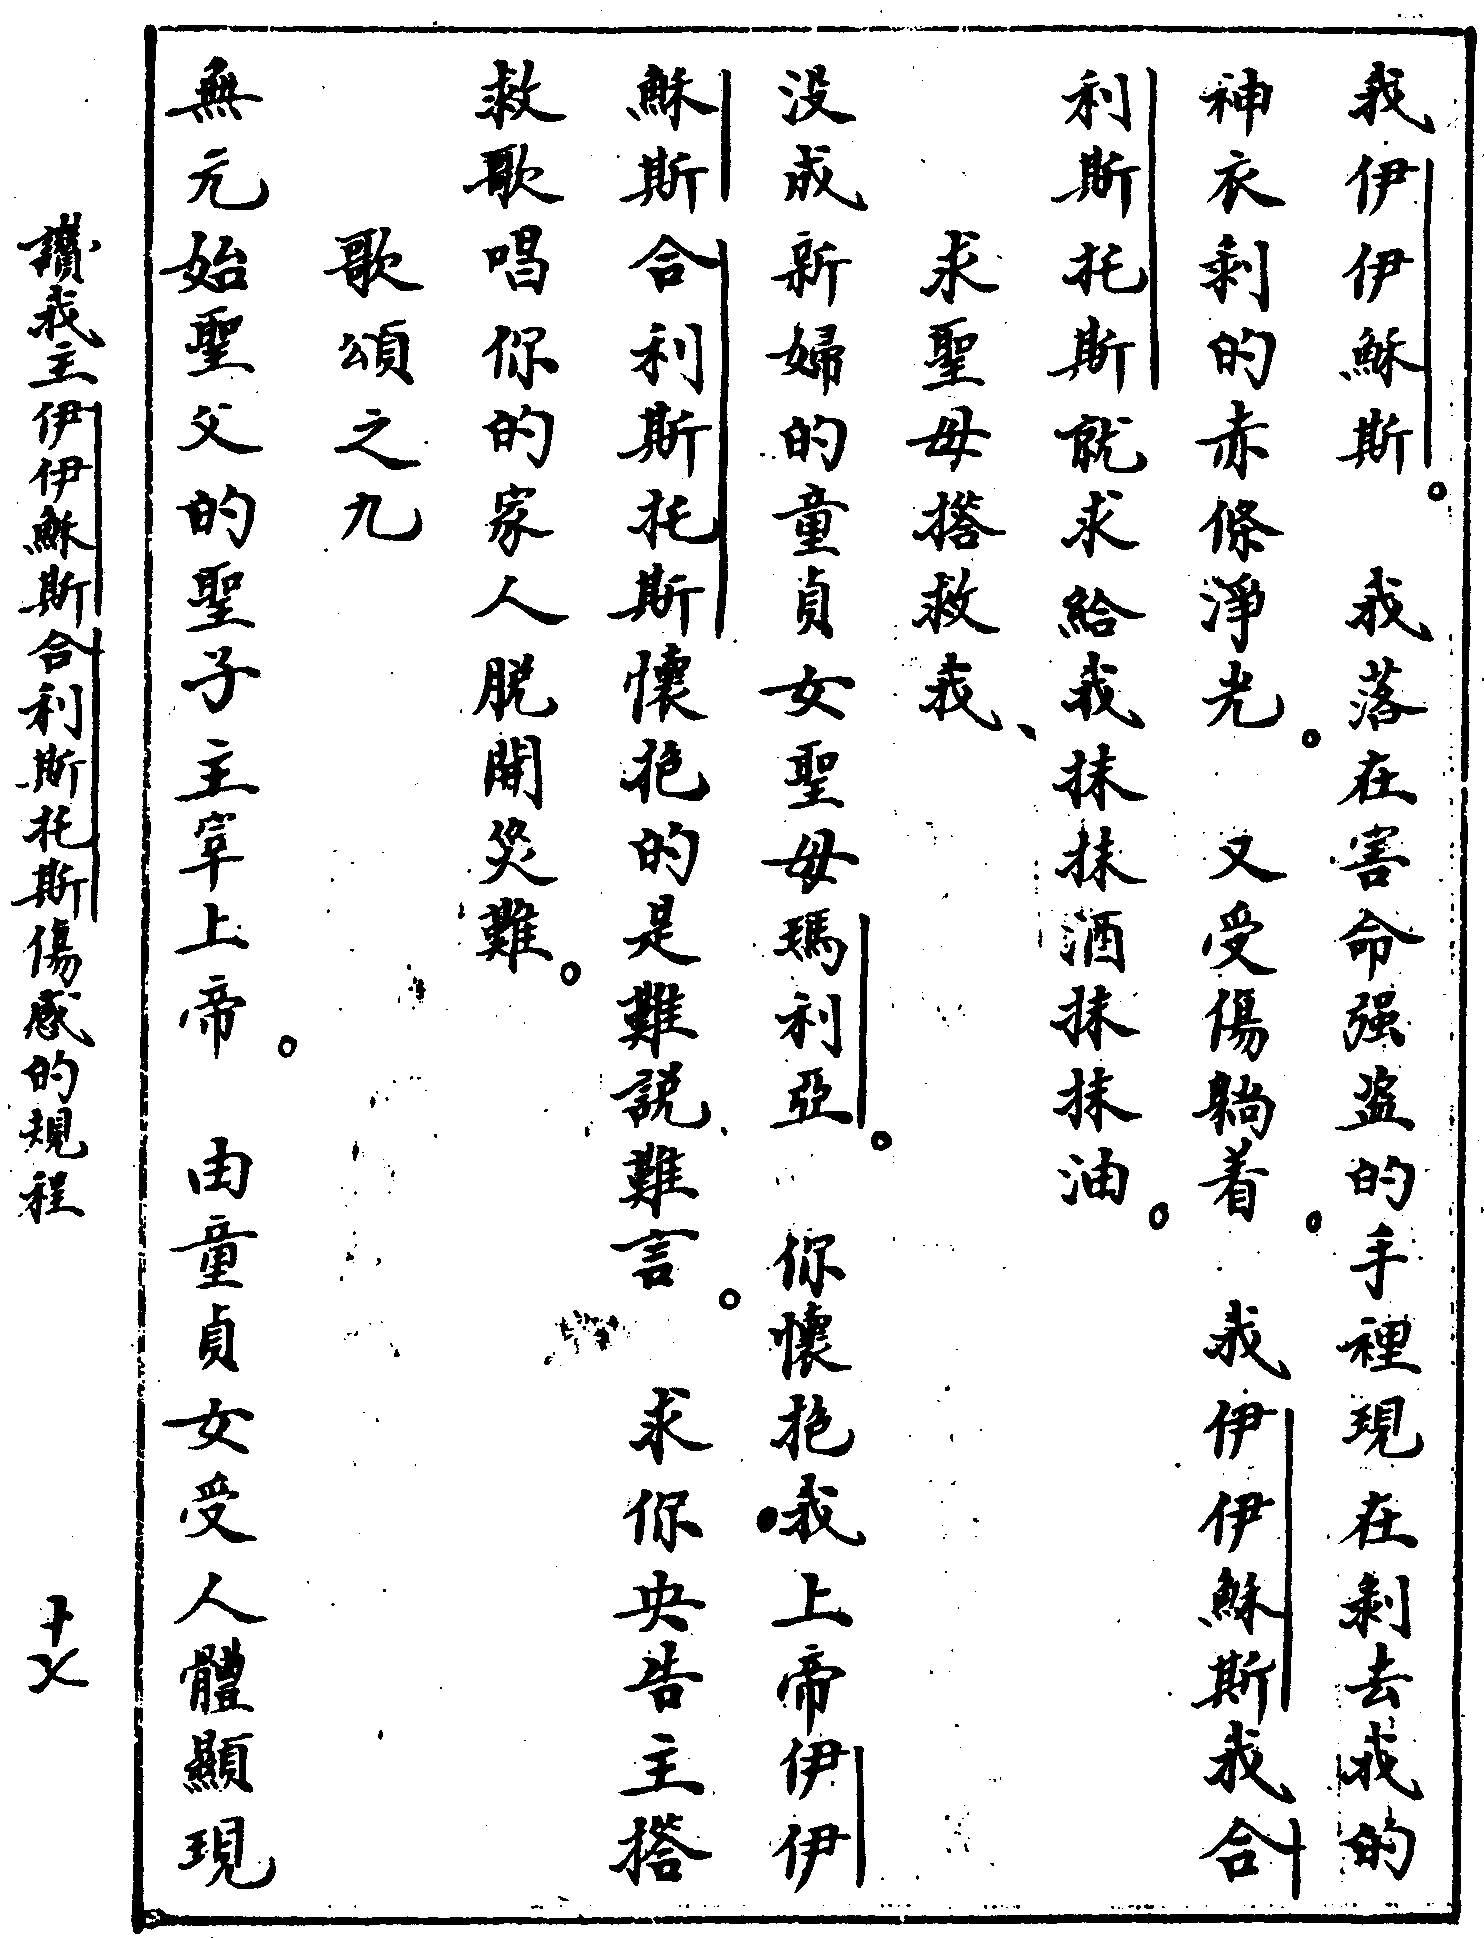 我伊伊穌斯。我落在害命强盗的手裡現在剥去我的
神衣剥的赤條淨光。又受傷躺着。我伊伊穌斯我合
利斯托斯就求給我抹抹酒抹抹油。
求聖母搭救我、
没成新婦的童貞女聖母瑪利亞。你懷抱我上帝伊伊
穌斯合利斯托斯懷抱的是難説難言。求你央告主搭
救歌唱你的家人脱開災難。
歌頌之九
無元始聖父的聖子主宰上帝。由童貞女受人體顯現
讚我主伊伊穌斯合利斯托斯傷感的規程
十乂